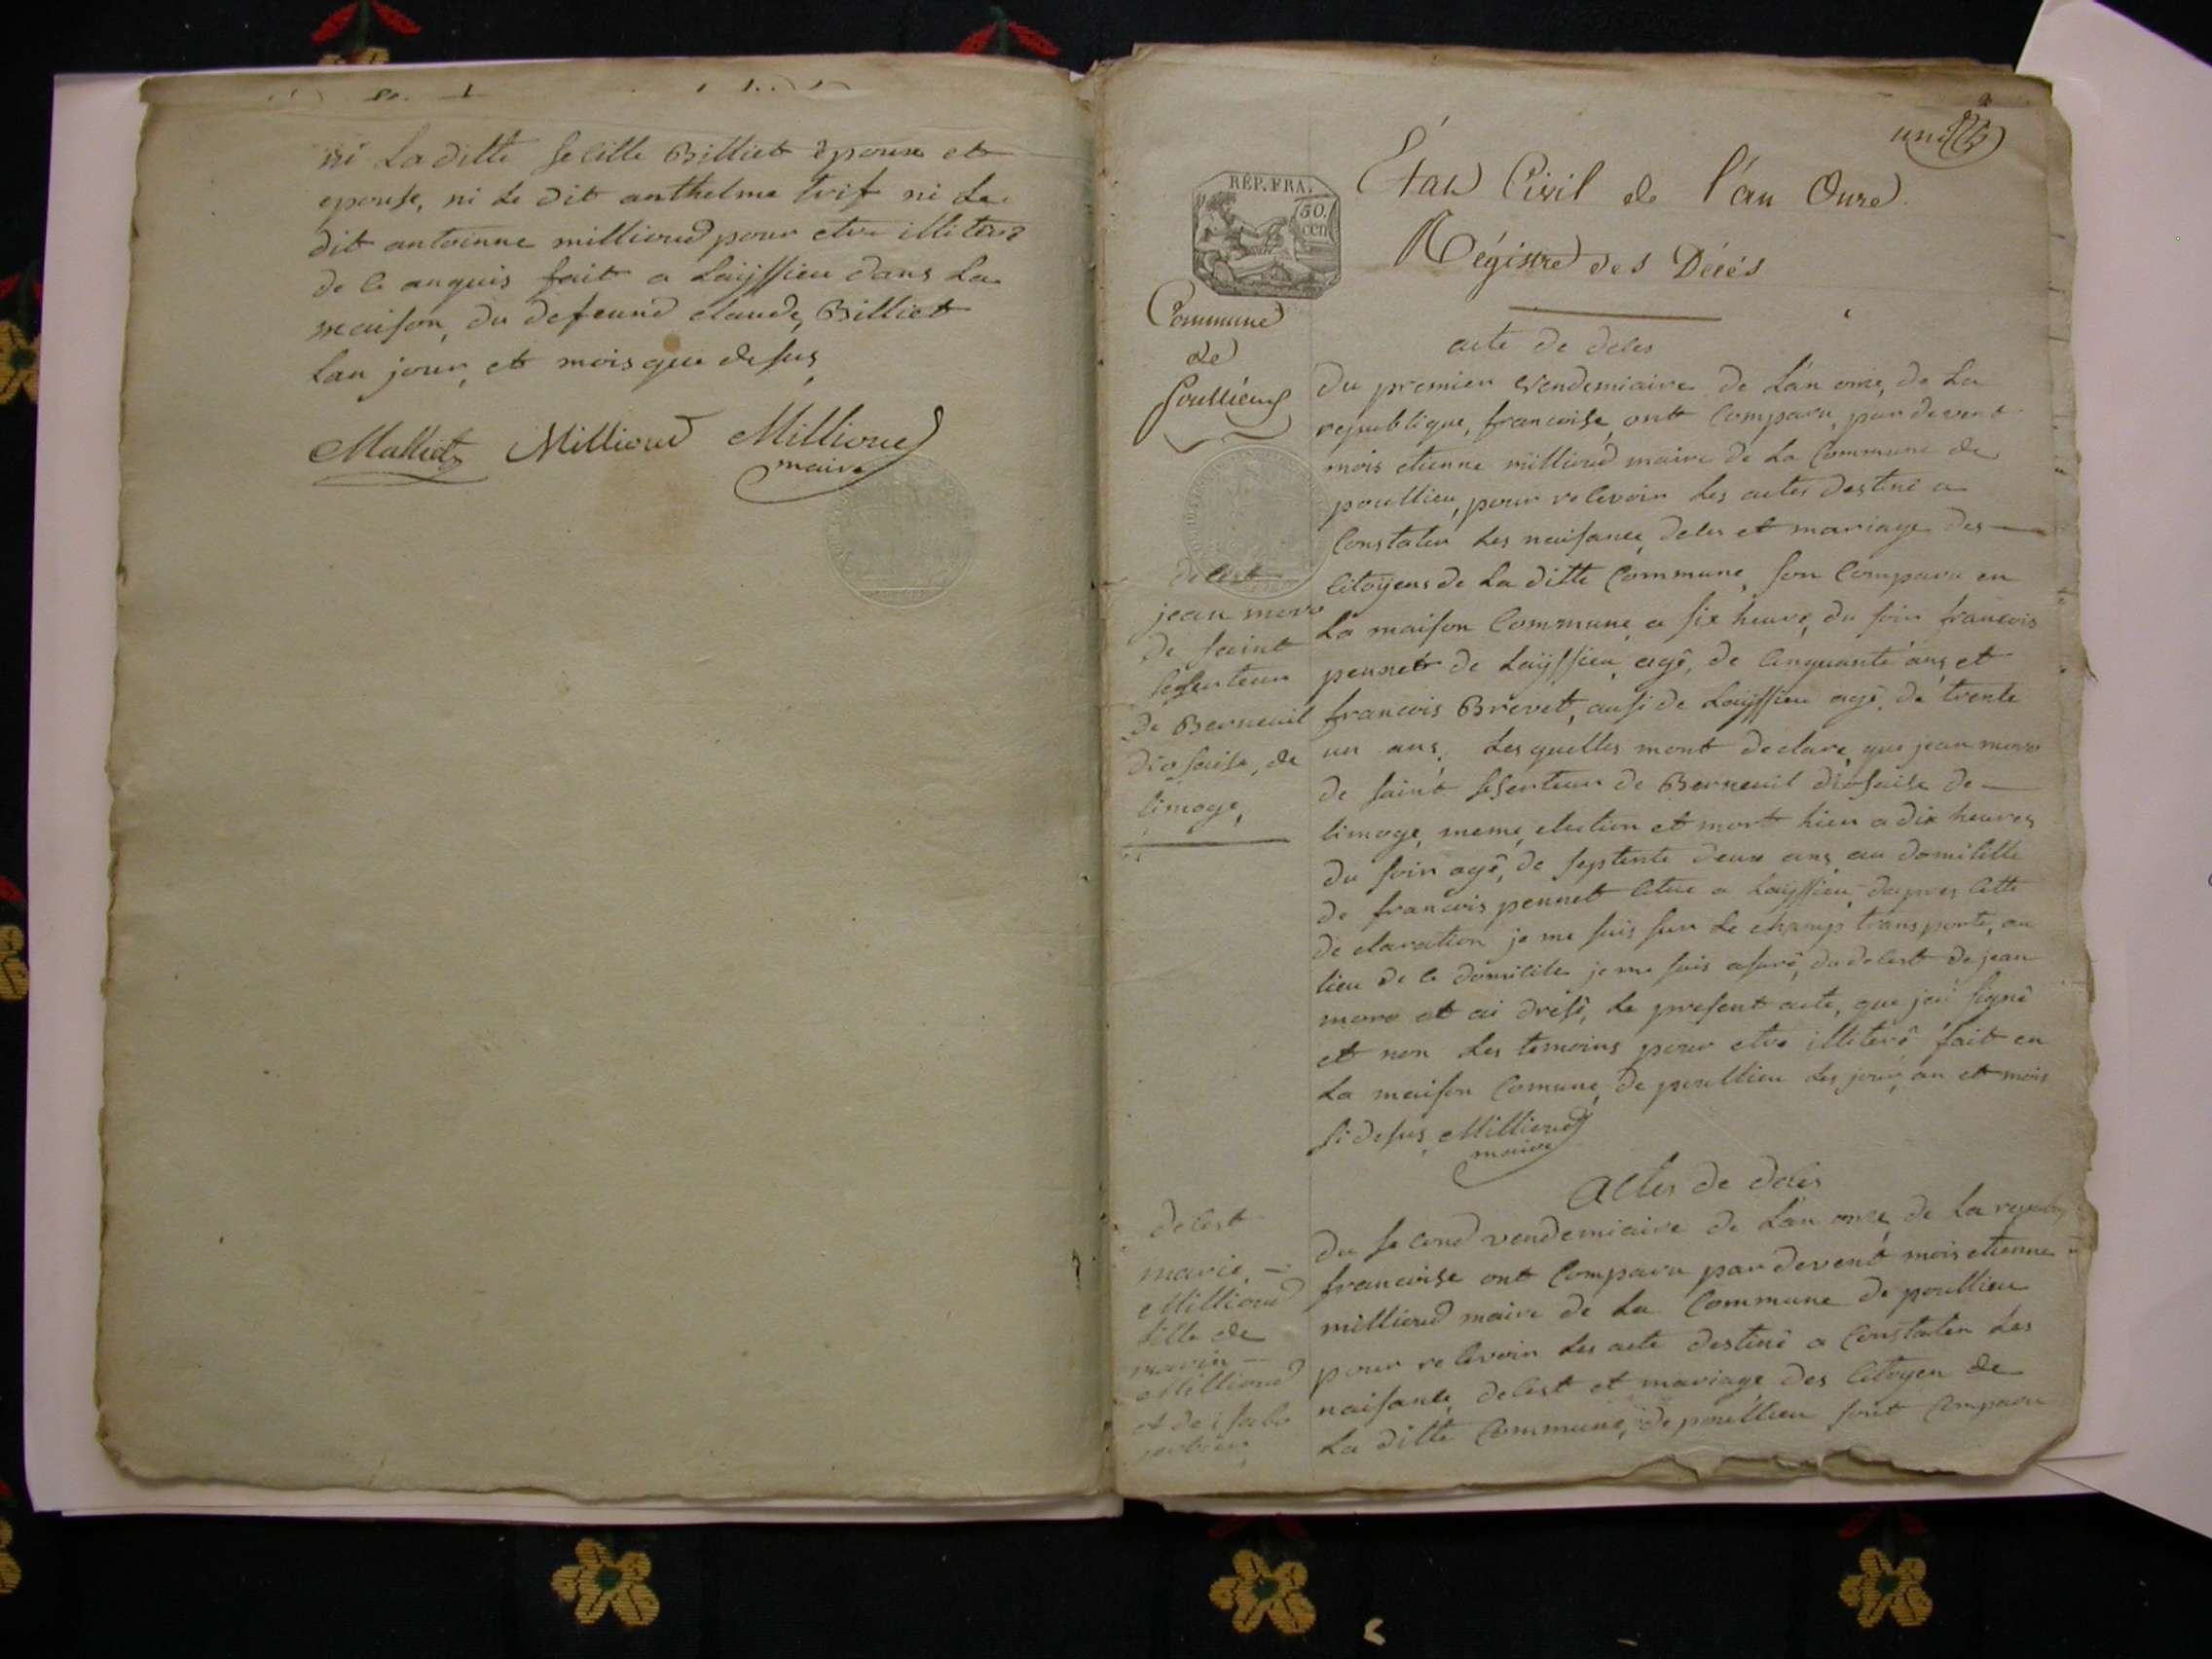 ni La ditte Secille Billiet epoux et
epouse, ni Le dit anthelme trif ni Le
dit antoinne millioud pour etre illiteré
de ce anquis fait a Laijssieu dans La
maison, du defeund claude, Billiet
Lan jour, et mois que desus
Malliet Millioud Millioud
maire
un
RÉP. FRA.
50.
cen
État Civil de l'an Onze.
Régistre des Décés
Commune
de
Poullieu
acte de deces
Du premier vendemiaire de Lan onze, de La
republique, francoise, ont Comparu, par devent
mois etienne millioud maire de La Commune de
poullieu, pour recevoir Les actes destiné a
Constater Les naisance, deces et mariage des
Citoÿens de La ditte Commune, son Comparu en
La maison Commune, a six heure, du soir francois
pennet de Laijssieu, agé, de Cinquante ans, et
francois Brevet, ausi de Laijssieu agé, de trente
un ans. Lesquelles mont declare, que jean moro
de saint seserteur de Berneuil diosaise de
limoge, meme, election et mort hier a dix heures
du soir agé, de septente deux ans au domicille
de francois, pennet Citue a Laijssieu, dapres Cette
declaration je me suis sur Le champ transporte, au
lieu de ce domicile je me suis asuré, du decest de jean
moro et ai dresé, Le present acte, que jai signé
et non Les temoins pour etre illiteré fait en
La maison Comune, de poullieu Les jour, an et mois
si desus, Millioud
maire
decest
jean moro
de saint
seserteur
de Berneuil
diosaise, de
limoge,
Actes de deces
du second vendemiaire de Lan onze, de La
francoise ont Comparu par devent mois etienne
millioud maire de La Commune de poullieu
pour recevoir Les acte destiné a Constater Les
naisance, decest et mariage des Citoyen de
La ditte Commune, de poullieu sont Comparu
decest
marie,
Millioud
fille de
marin
Millioud
et de isabe